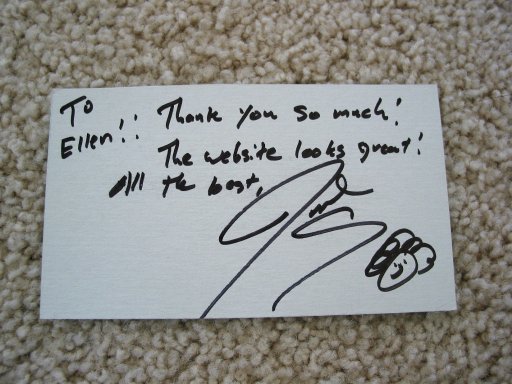 To
Ellen!! Thank you so much!
The website looks great!
All the best,